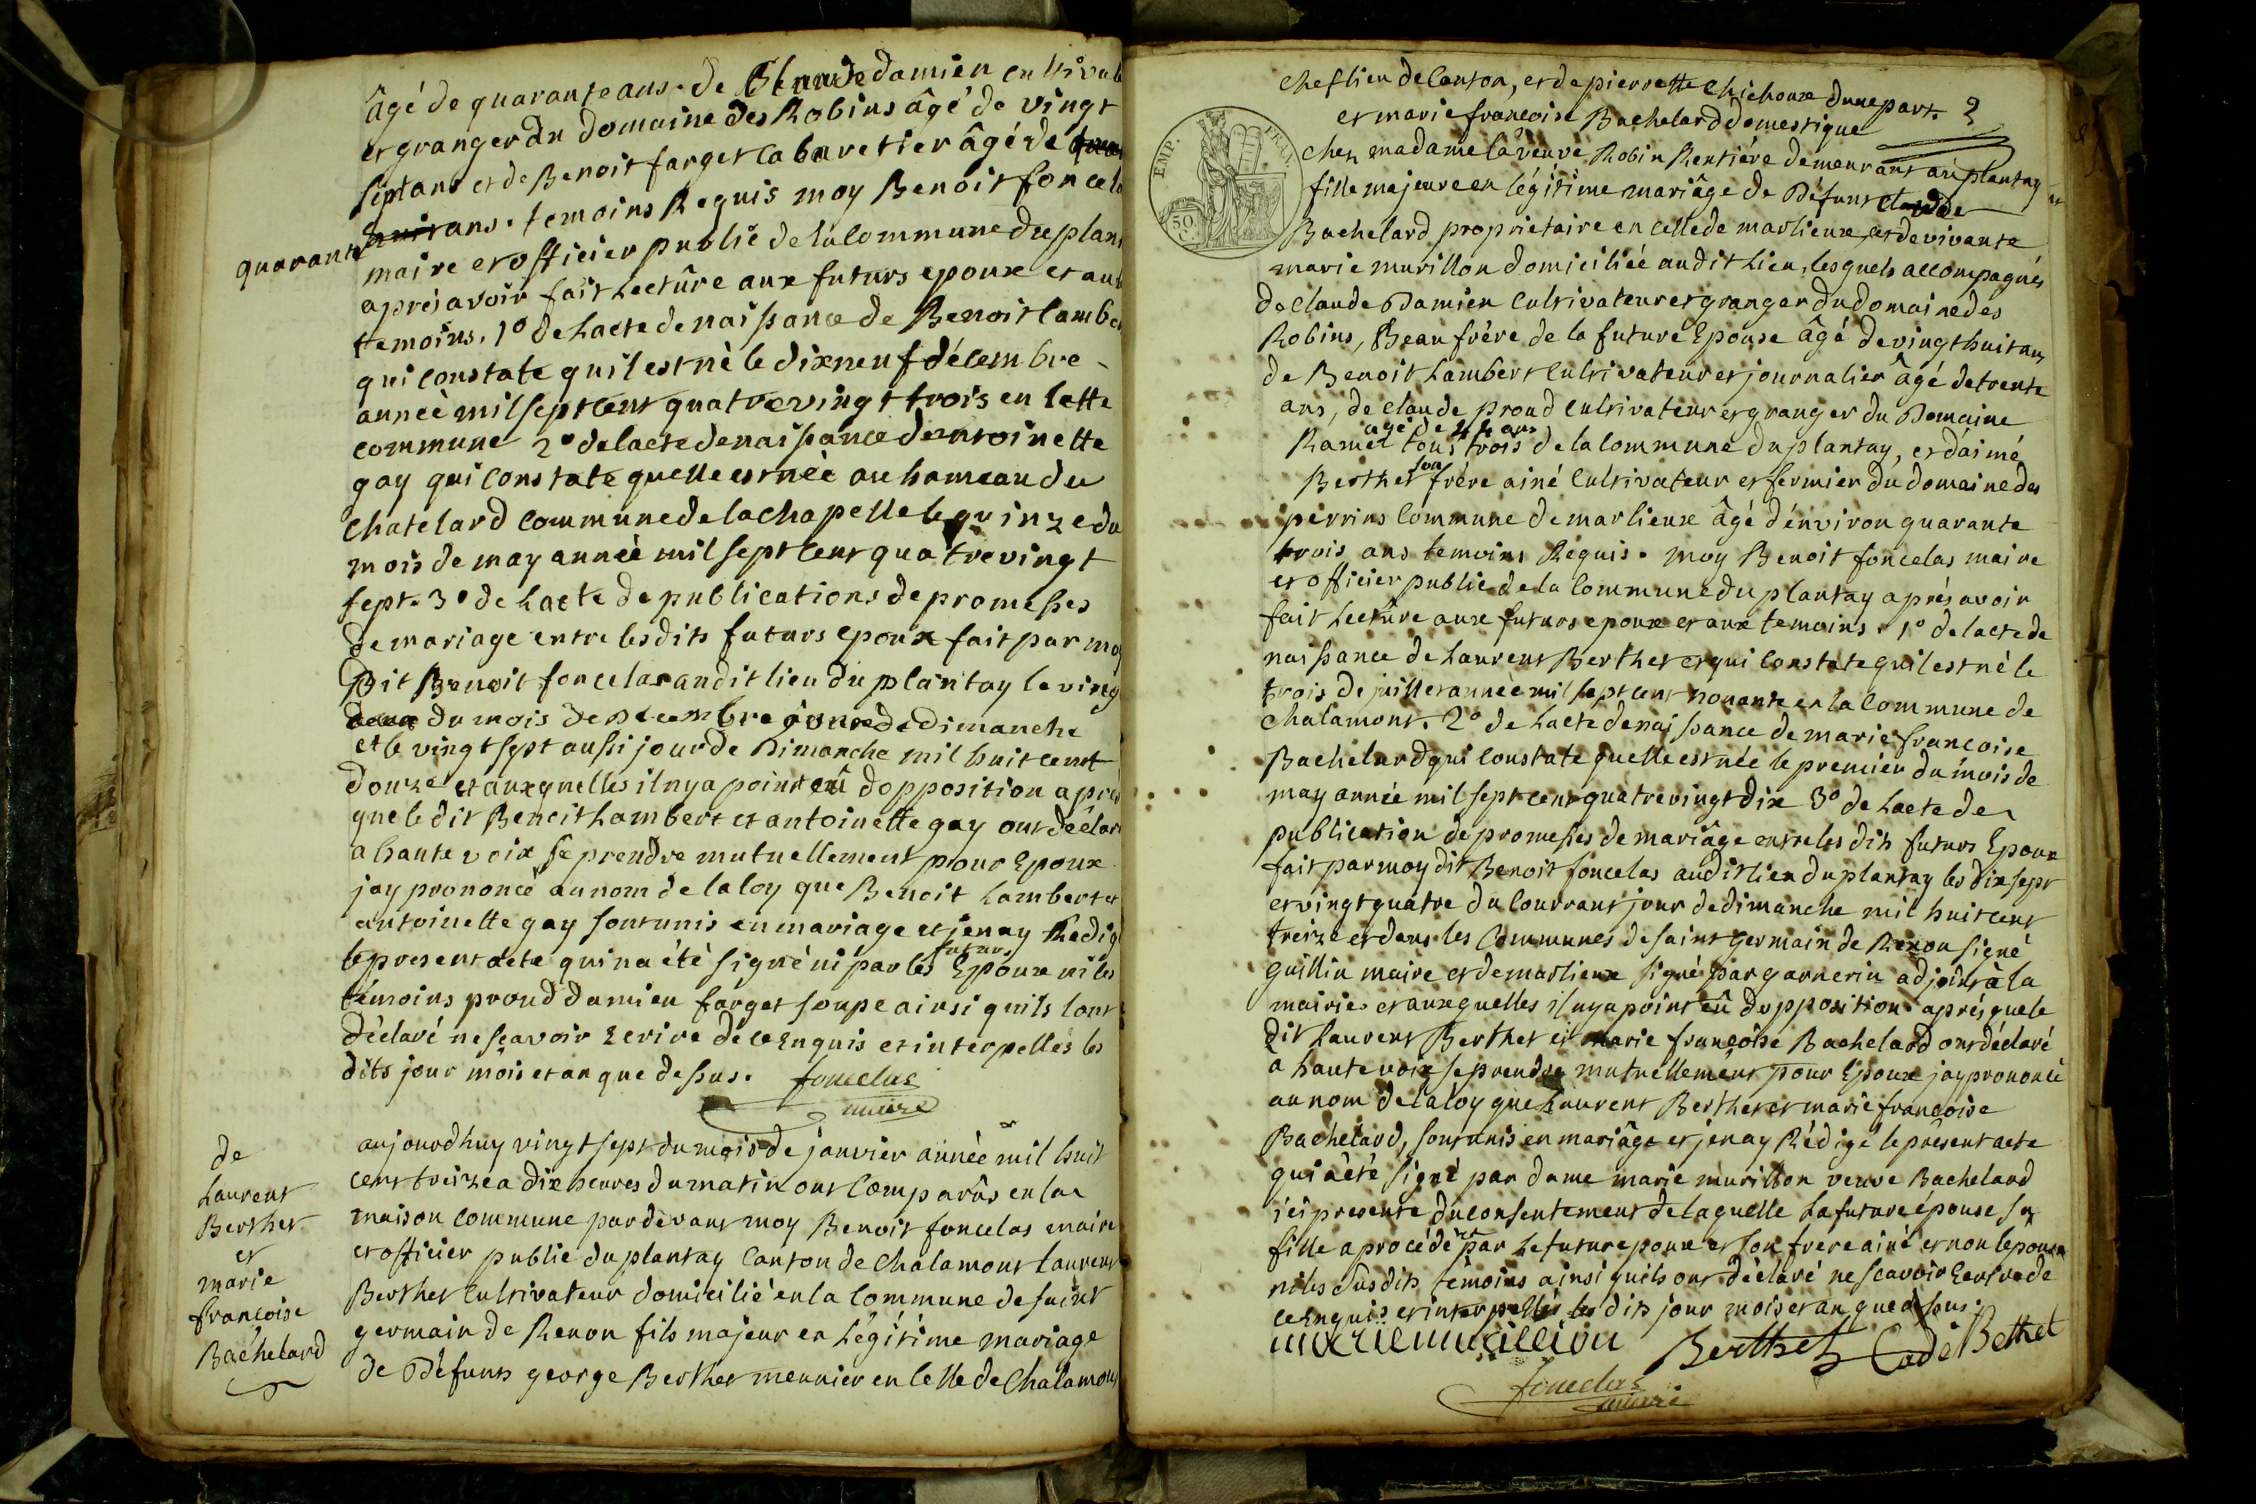 âgé de quarante ans. de Claude damien cultivat
et granger du domaine des Robins âgé de vingt
sept ans et de Benoit farget cabaretier âgé de
huit ans. temoins Requis moy Benoit foncela
quarante
maire et officier public de la commune du plan
aprés avoir fait Lectûre aux futurs epoux et aux
temoins. 1º de Lacte de naissance de Benoit lambe
qui constate quil est nè le dix neuf décembre
anneè mil sept cent quatre vingt trois en cette
commune 2º de lacte de naissance dantoinette
gay qui constate quelle est neè au hameau du
chatelard commune de la chapelle le quinze du
mois de may anneè mil sept cent quatre vingt
sept. 3º de Lacte de publications de promesses
de mariage entre lesdits futurs epoux fait par mo
Dit Benoit foncelas audit lieu du plantay le ving
deux du mois de decembre jour de dimanche
et le vingt sept aussi jour de Dimanche mil huit cent
douze et auxquelles il ny a point eû dopposition aprés
que le dit Benoit Lambert et antoinette gay ont déclar
a haute voix se prendre mutuellement pour Epoux
jay prononcè au nom de la loy que Benoit Lambert et
antoinette gay sont unis en mariage et jenay Redig
le present acte qui na étè signé ni par les futurs Epoux ni les
témoins proud damien farget soupe ainsi quils lont
déclaré ne scavoir Ecrire de ce Enquis et interpellés les
dits jour mois et an que dessus. foncelas
maire
de
Laurent
Berthet
et
marie
francoise
Bachelard
aujourdhuy vingt sept du mois de janvier anneè mil huit
cent treize a dix heures du matin ont comparûs en la
maison commune pardevant moy Benoit foncelas maire
et officier public du plantay canton de chalamont Laurent
Berthet cultivateur domiciliè en la commune de saint
germain de Renon fils majeur en Légitime mariage
de Défunts george Berthet meunier en celle de chalamont
EMP. FRAN.
50 C.
chef lieu de Canton, et de pierrette chichoux dune part.
et marie francoise Bachelard domestique
chez madame la veuve Robin Rentiére demeurant au plantay
fille majeure en légitime mariâge de Défunt claude
Bachelard propriétaire en celle de marlieux, et de vivante
marie murillon domiciliéé audit lieu, lesquels accompagnés
de claude Damien cultivateur et granger du domaine des
Robins, Beau frère de la future Epouse âgé de vingt huit ans
de Benoit Lambert cultivateur et journalier âgé de trente
ans, de claude proud cultivateur et granger du Domaine
Ramel agé de 44 ans tous trois de la commune du plantay, et daimé
Berthet son frére ainé cultivateur et fermier du domaine des
perrins commune de marlieux âgé denviron quarante
trois ans temoins Requis. moy Benoit foncelas maire
et officier public de la commune du plantay aprés avoir
fait Lectûre aux futurs epoux et aux temoins. 1º de lacte de
naissance de Laurent Berthet et qui constate quil est nè le
trois de juillet anneè mil sept cent nonante en la commune de
chalamont. 2º de Lacte de naissance de marie francoise
Bachelard qui constate quelle est née le premier du mois de
may année mil sept cent quatre vingt dix 3º de Lacte de
publication de promesses de mariâge entre les dits futurs Epoux
fait par moy dit Benoit foncelas audit lieu du plantay les dix sept
et vingt quatre du courrant jour de dimanche mil huit cent
treize et dans les communes de saint germain de Renon signé
guillin maire et de marlieux signé par garnerin adjoint à la
mairie. et auxquelles il ny a point eû dopposition. aprés que le
dit Laurent Berthet et marie francoise Bachelard ont déclaré
a haute voix se prendre mutuellement pour Epoux jay prononcé
au nom de la loy que Laurent Berthet et marie francoise
Bachelard, sont unis en mariâge et jenay Rédigé le présent acte
qui a été signé par dame marie murillon veuve Bachelard
ici presente du consentement de laquelle La future épouse sa
fille a procédé et par le futur epoux et son frere ainé et non lepouse
ni les susdits témoins ainsi quils ont déclaré ne scavoir Ecrire de
ce Enquis et interpellés les dits jour mois et an que dessus.
marie murillion Berthet Cadé Bethet
foncelas
maire